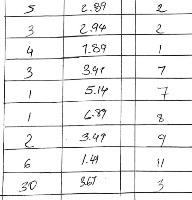 5 2.89 2
3 2.94 2
4 1.89 1
3 3.41 7
1 5.14 7
1 6.89 8
2 3.49 9
6 1.41 11
30 3.67 3